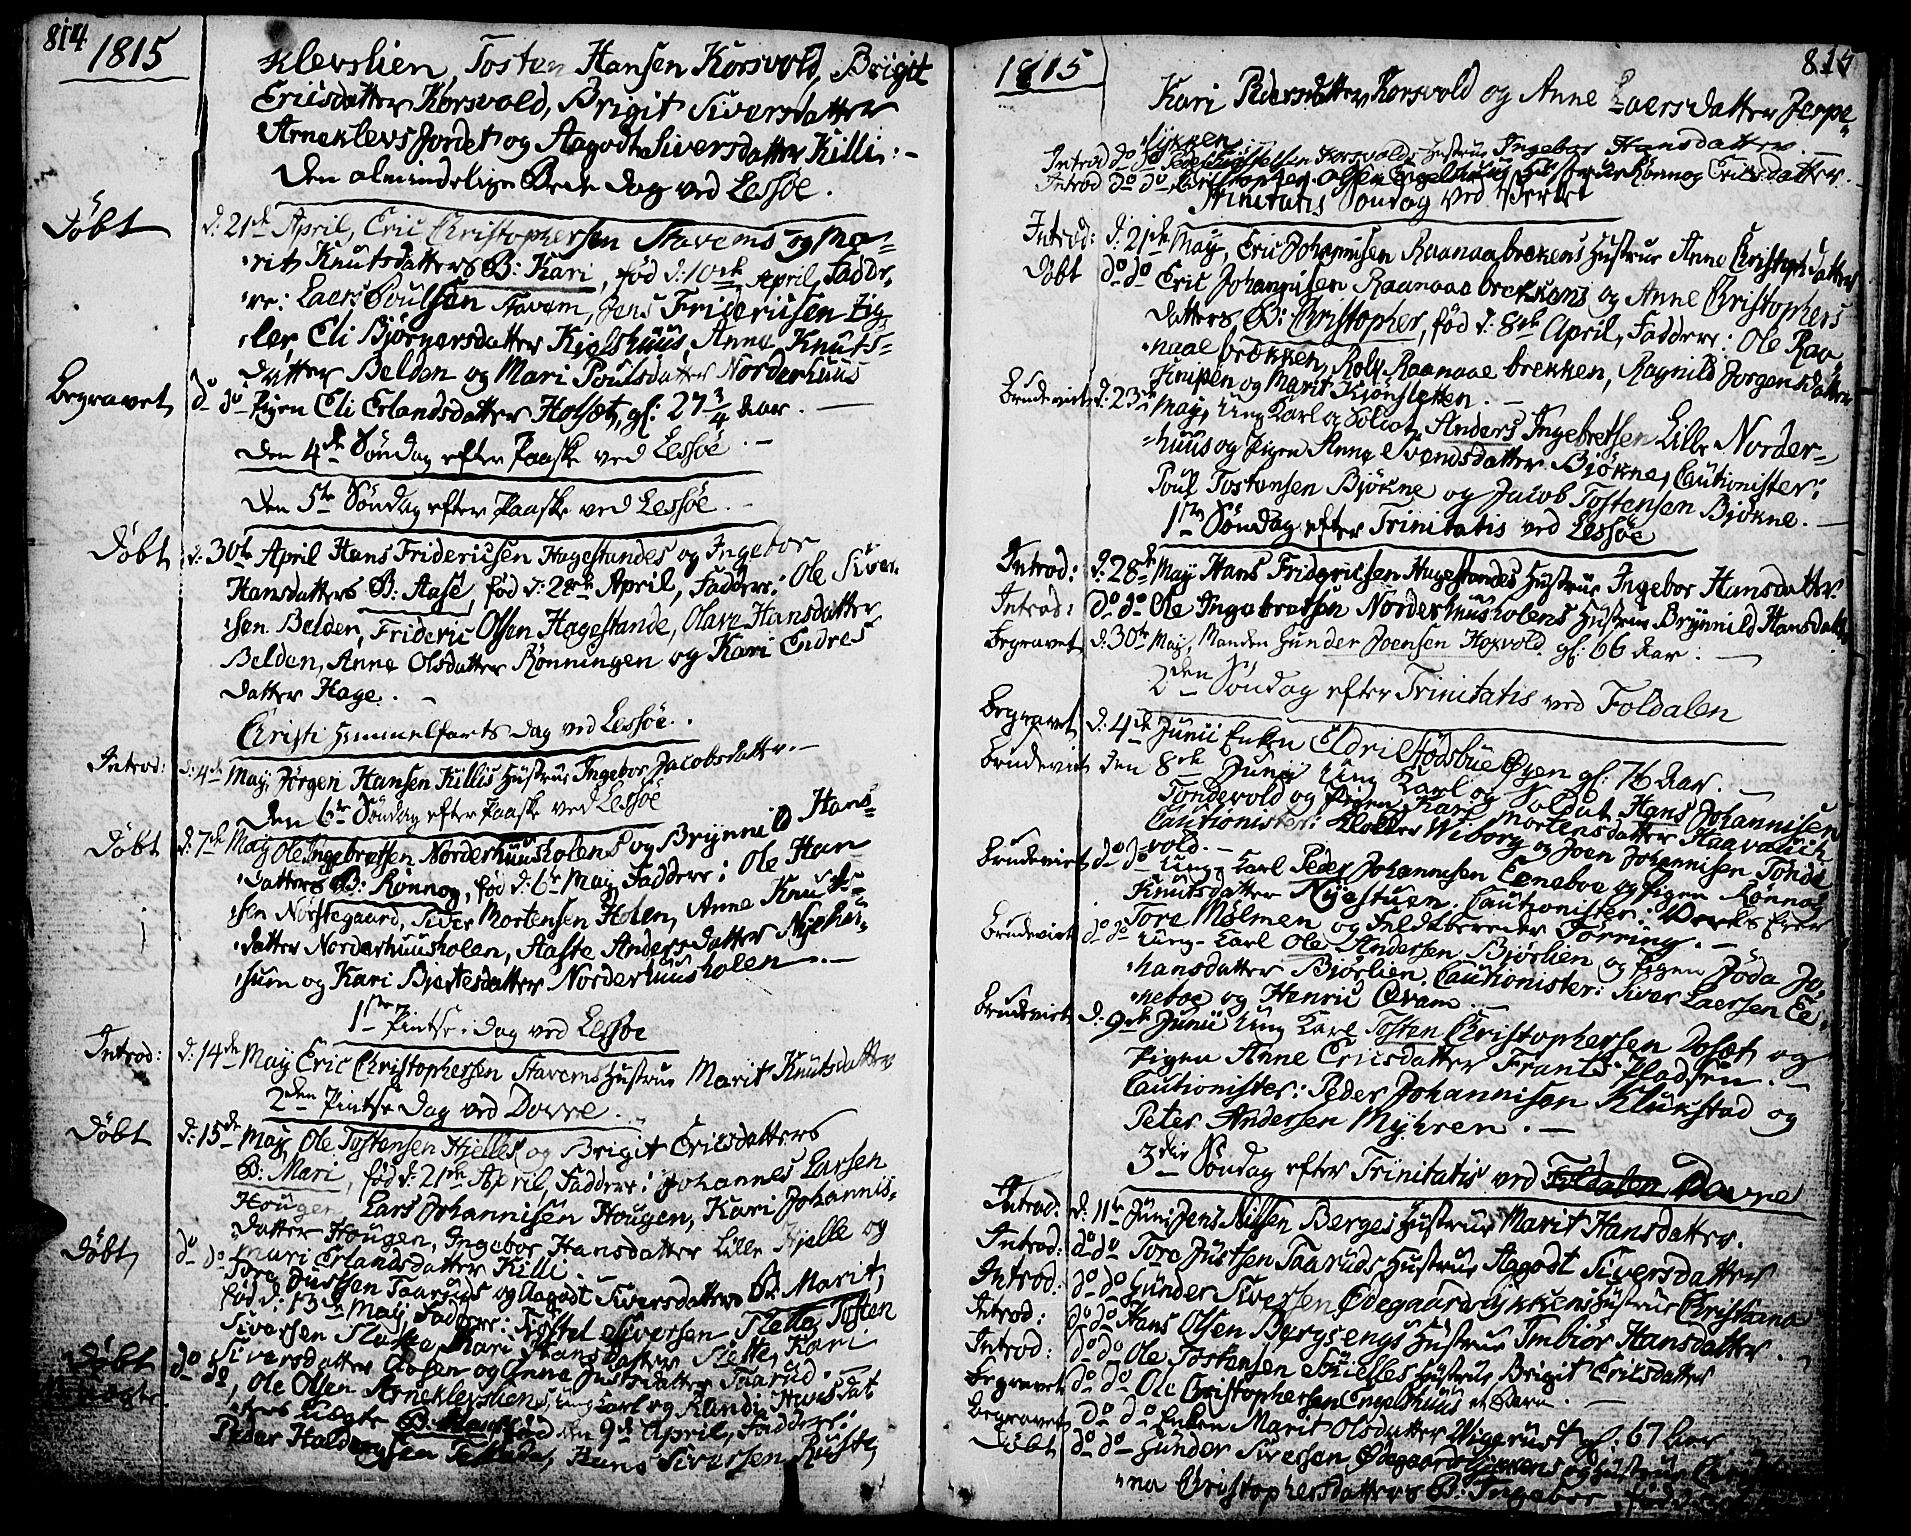 814
1815
Klevslien, Tosten Hansen Korsvold, Brigit
Ericsdatter Korsvold, Brigit Siversdatter
Arneklevs Jordet og Aagodt Siversdatter Killi. -
Den almindelige Bede Dag ved Lessøe.
Døbt d: 21de April, Eric Christophersen Stavems og Ma-
rit Knutsdatters B: Kari, fød d: 10de April, Fadde-
re: Laers Poulsen Stavem, Jens Fridericsen Zig-
ler, Eli Bjørnersdatter Kjelshuus, Anne Knuts-
datter Belden og Mari Poulsdatter Norderhuus
Begravet do do Pigen Eli Erlandsdatter Holset, gl: 27 3/4 Aar. -
Den 4de Søndag efter Paaske ved Lessøe. -
Den 5te Søndag efter Paaske ved Lessøe.
Døbt d: 30te April Hans Fridericsen Hagestandes og Ingebor
Hansdatters B: Aase, fød d: 28de April, Faddere: Ole Siver-
sen Belden, Frideric Olsen Hagestande, Olave Hansdatter
Belden, Anne Olsdatter Rønningen og Kari Endres
datter Hage. -
Christi Himmelfarts Dag ved Lessøe.
Introd: d: 4de May, Jørgen Hansen Killis Hustrue Ingebor Jacobsdatter. -
Den 6te Søndag efter Paaske ved Lessøe
Døbt d: 7de May Ole Ingebretsen Norderhuusholens og Brynnild Hans-
datters B: Rønnog, fød d: 6te May, Faddere: Ole Han-
sen Norstegaard, Siver Mortensen Holen, Anne Knuts-
datter Norderhuusholen, Aaste Andersdatter Nyehu-
sum og Kari Bjertesdatter Norderhuusholen. -
1ste Pintse-Dag ved Lessøe
Introd: d: 14de May Eric Christophersen Stavems Hustrue Marit Knutsdatter
2den Pintse Dag ved Dovre.
Døbt d: 15de May, Ole Tostensen Hjelles og Brigit Ericsdatters
B: Mari, fød d: 21de April, Faddere: Johannes Larsen
Hougen, Lars Johannisen Hougen, Kari Johannis-
datter Hougen, Ingebor Hansdatter Lille Hjelle og
Mari Erlandsdatter Killi. -
Døbt do do Tore Justsen Taaruds og Aagodt Siversdatters B: Marit,
fød d: 13de May, Faddere: Trostel Siversen Slette, Tosten
Siversen Slette, Mari Hansdatter Slette, Kari
Siversdatter Aasen og Anne Justsdatter Taarud. -
Døbt do do, Ole Olsen Arneklevsliens, Ung Karl og Randi Hansdat
Uægte. ters Uægte B: fød den 9de April, Faddere:
Peder Haldorsen, Hans Siversen Ruste,
815
1815
Kari Pedersdatter Korsvold og Anne Laersdatter Jespe-
lykken
Introd do do Korsvolds Hustrue Ingebor Hansdatter. -
Introd do do, Christopher Olsen Engelshuus Hustrue Rønnog Ericsdatter.
Trinitatis Søndag ved Verket
Introd: d: 21de May, Eric Johannisen Raanaabrekens Hustrue Anne Christophersdatter
Døbt do do Eric Johannisen Raanaabrekkens og Anne Christophers
datters B: Christopher, fød d: 8de April, Faddere: Ole Raa-
naabrekken, Rolv Raanaabrekken, Ragnild Jorgensdatter
Knipen og Marit Kjønsletten. -
Brudeviet d: 23de May, Ung Karl og Soldat, Anders Ingebretsen Lille Norder-
huus og Pigen Anne Svendsdatter Bjøkne, Cautionister:
Poul Tostensen Bjøkne og Jacob Tostensen Bjøkne. -
1ste Søndag efter Trinitatis ved Lessøe
Introd: d: 28de May Hans Fridericsen Hagestandes Hustrue Ingebor Hansdatter
Introd: do do Ole Ingebretsen Norderhuusholens Hustrue Brynnild Hansdatter
Begravet d: 30te May, Manden Gunder Joensen Hoxvold, gl: 66 Aar. -
2den Søndag efter Trinitatis ved Foldalen
Begravet d: 4de Junii Enken Eldri Stødsbue Øyen gl: 76 Aar. -
Brudeviet den 8de Junii Ung Karl og Soldat Hans Johannisen
Tondevold og Pigen Kari Mortensdatter Haavalien
Cautionister: Klokker Wiborg og Joen Johannisen Tonde
vold. -
Brudeviet do do Ung Karl Peder Johannisen Eeneboe og Pigen Rønnog
Knutsdatter Nyestuen. Cautionister: Verks Eier
Tore Mølmen og Feldtbereder Tørring. -
Brudeviet do do Ung Karl Ole Andersen Bjørlien og Pigen Jøda Jo-
hansdatter Bjørlien. Cautionister: Siver Laersen Ee-
neboe og Henric Øvam. -
Brudeviet d: 9de Junii Ung Karl Tosten Christophersen Doset og
Pigen Anne Ericsdatter Frants Pladsen. -
Cautionister: Peder Johannisen Klukstad og
Peter Andersen Myhren. -
3die Søndag efter Trinitatis ved Foldalen Dovre
Introd: d: 11te Juni Jens Nilsen Berges Hustrue Marit Hansdatter.
Introd: do do Tore Justsen Taaruds Hustrue Aagodt Siversdatter
Introd: do do Gunder Siversen Ødegaardslykkens Hustrue Christiana
Introd: do do Hans Olsen Bergsengs Hustrue Imbiør Hansdatter.
Introd: do do Ole Tostensen Hielles Hustrue Brigit Ericsdatter
Begravet do do Ole Christophersen Engelshuus et Barn. -
Begravet do do Enken Marit Olsdatter Wigerust gl: 67 Aar
Døbt do do Gunder Siversen Ødegaardslykkens og Hustrue
na Christophersdatters B: Ingebor, fød